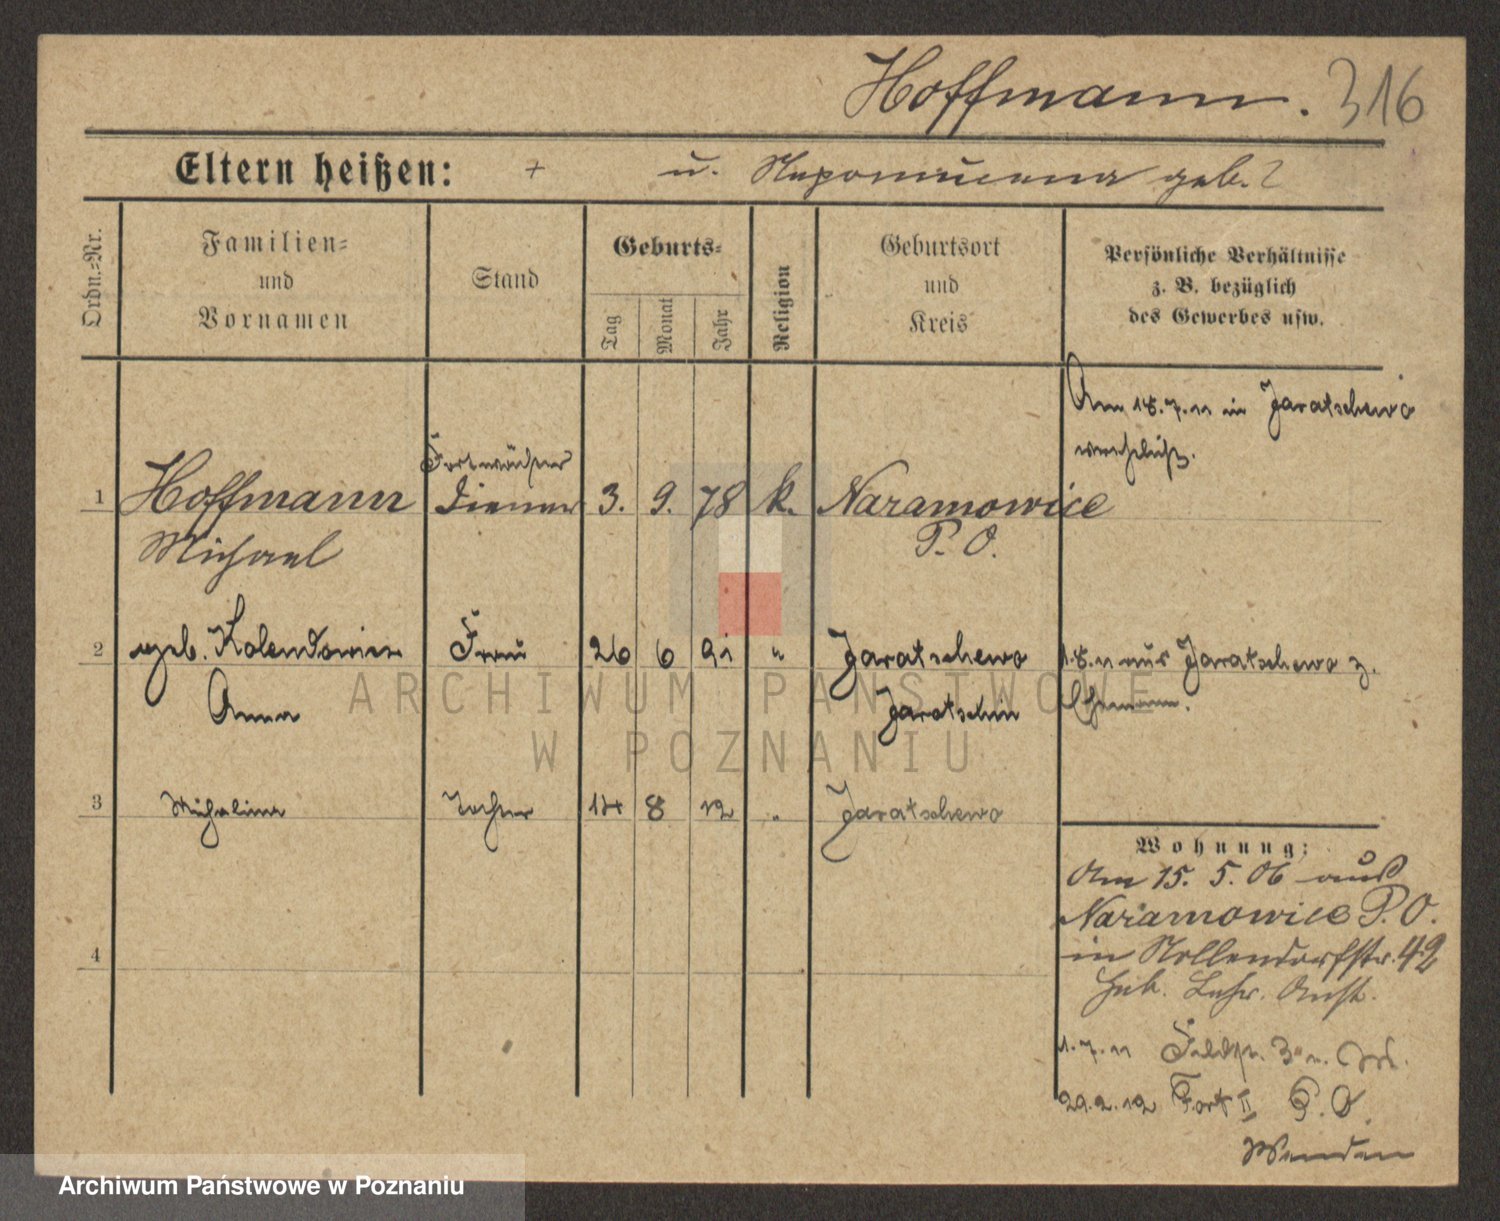 Hoffmann. 316
Eltern heißen: + u. Nepomucena geb. ?
Ordn.=Nr.
Familien=
und
Vornamen
Stand
Geburts=
Tag
Monat
Jahr
Religion
Geburtsort
und
Kreis
Persönliche Verhältnisse
z. B. bezüglich
des Gewerbes usw.
Am 18.7.11 in Jaratschewo
verehelicht.
Fortwächter
1 Hoffmann Diener 3. 9. 78 k. Naramowice
Michael P. O.
2 geb. Frau 26 6 91 " Jaratschewo
Anna Jaratschin
1.8.11 aus Jaratschewo z.
Ehemann.
3 Tochter 14 8 12 " Jaratschewo
4
Wohnung:
Am 15. 5. 06 aus
Naramowice P. O.
in Nollendorfstr. 42
Anst.
1.7.11
29.2.12 Fort II P. O.
Wenden
ARCHIWUM PAŃSTWOWE
W POZNANIU
Archiwum Państwowe w Poznaniu